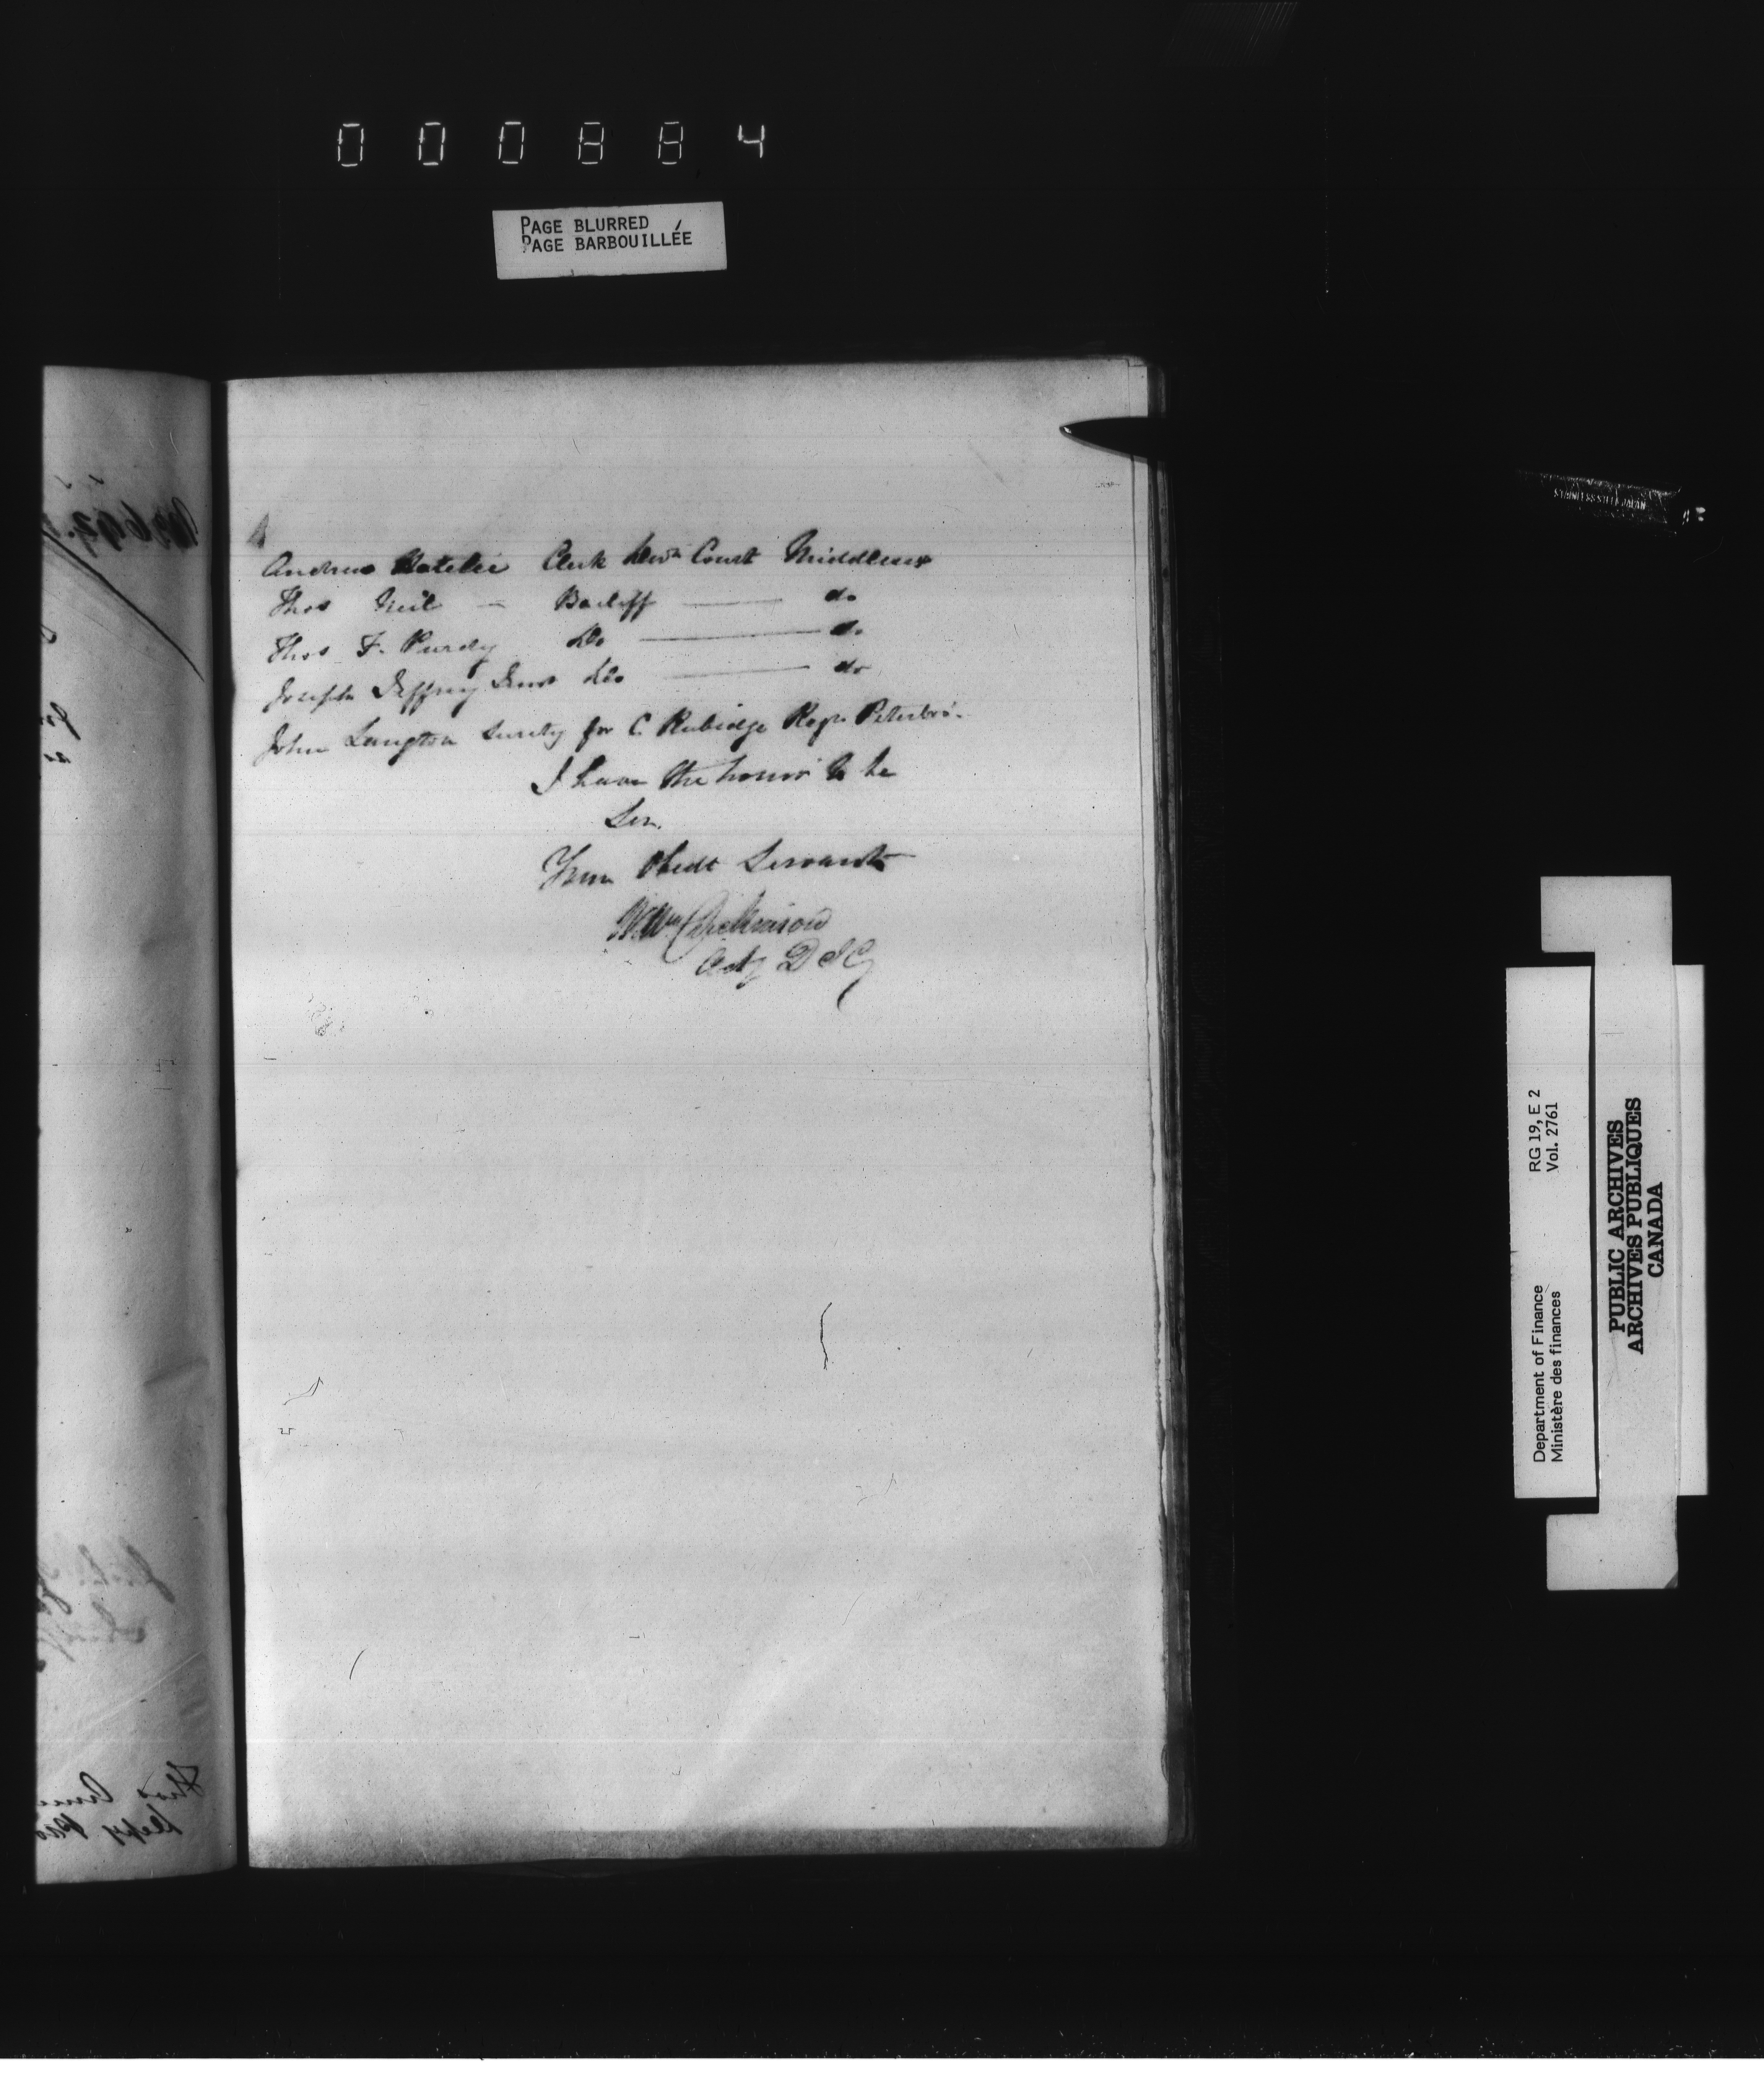 000884
PAGE BLURRED
PAGE BARBOUILLÉE
Andrew Clerk Divn Court Middlesex
Thos Neil — Bailiff — do
Thos F. Purdy Do — do
Joseph Jeffrey Do — do
John Langton Surety for C. Rubidge Regr Peterbro'.
I have the honor to be
Sir.
Your Obedt Servant
Actg D I G
STAINLESS STEEL JAPAN
Department of Finance RG 19, E 2
Ministère des finances Vol. 2761
PUBLIC ARCHIVES
ARCHIVES PUBLIQUES
CANADA